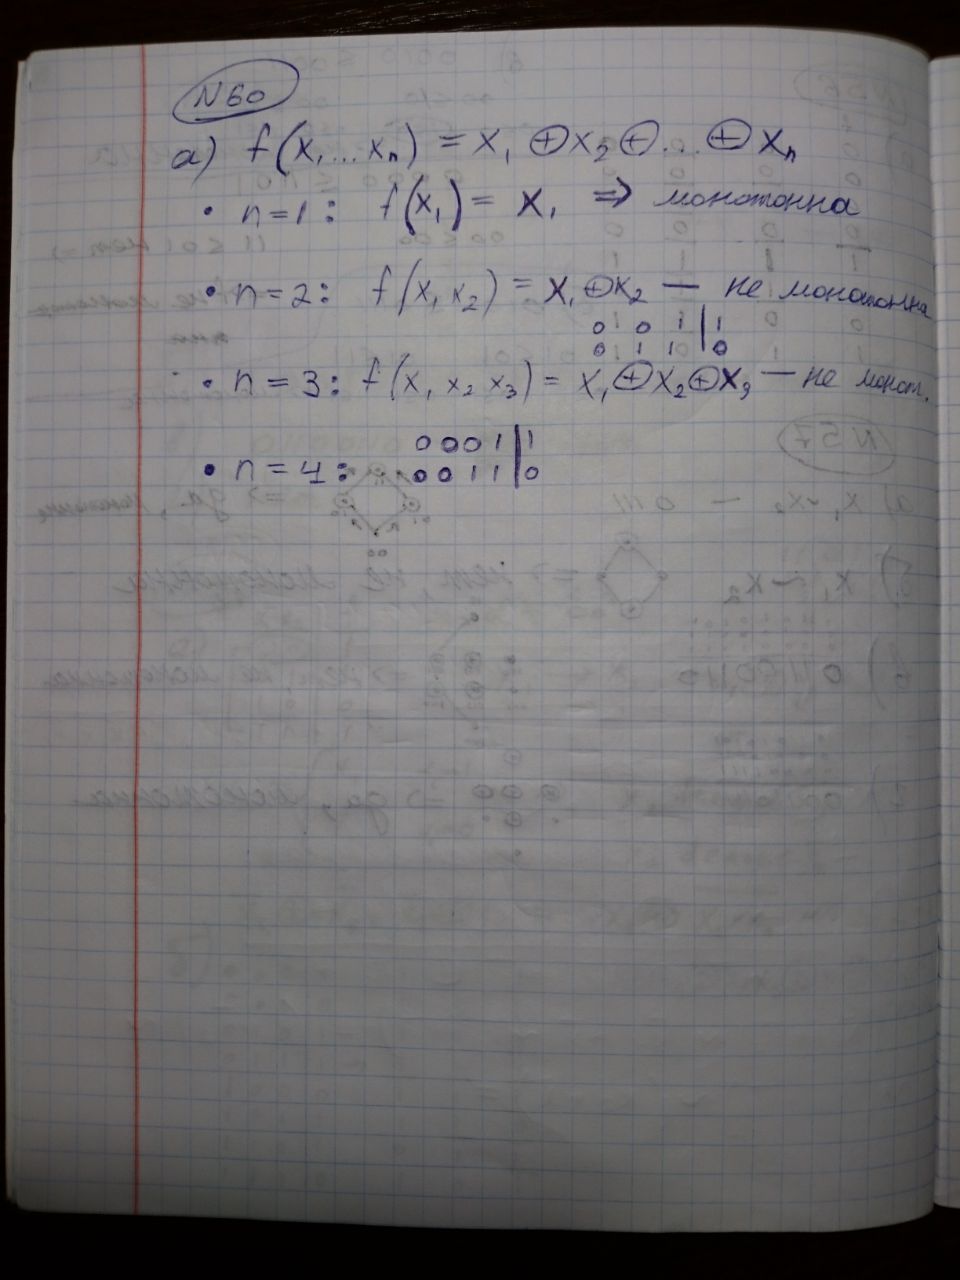 N60
а) f(x₁...xₙ) = x₁ ⊕ x₂ ⊕ ... ⊕ xₙ
• n=1: f(x₁) = x₁ ⇒ монотонна
• n=2: f(x₁ x₂) = x₁ ⊕ x₂ — не монотонна
0 0 1 | 1
0 1 1 | 0
• n=3: f(x₁ x₂ x₃) = x₁ ⊕ x₂ ⊕ x₃ — не монот.
0 0 0 1 | 1
• n=4: 0 0 1 1 | 0